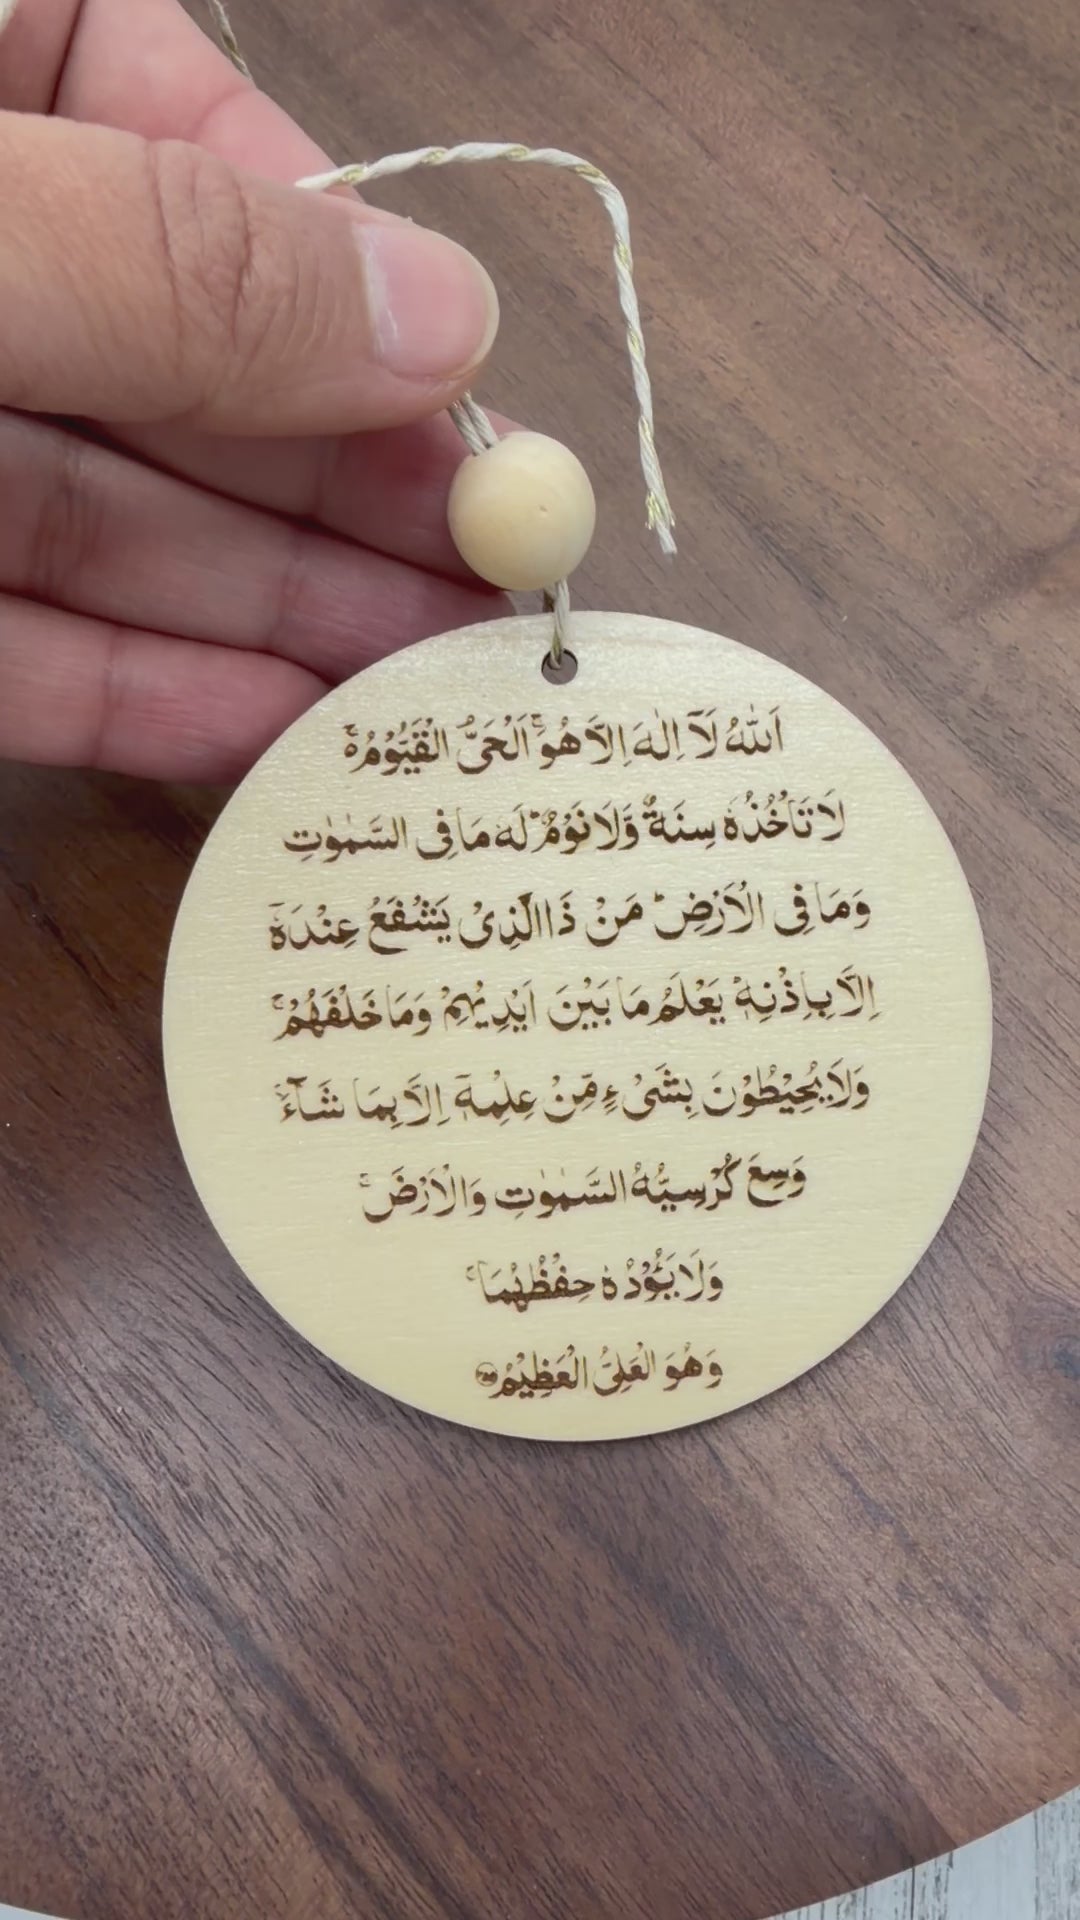 اَللّٰهُ لَآ اِلٰهَ اِلَّا هُوَ ۚ اَلْحَىُّ الْقَيُّوْمُ ەۚ
لَا تَاْخُذُهٗ سِنَةٌ وَّلَا نَوْمٌ ؕ لَهٗ مَا فِى السَّمٰوٰتِ
وَمَا فِى الْاَرْضِ ؕ مَنْ ذَا الَّذِىْ يَشْفَعُ عِنْدَهٗۤ
اِلَّا بِاِذْنِهٖ ؕ يَعْلَمُ مَا بَيْنَ اَيْدِيْهِمْ وَمَا خَلْفَهُمْ ۚ
وَلَا يُحِيْطُوْنَ بِشَىْءٍ مِّنْ عِلْمِهٖۤ اِلَّا بِمَا شَآءَ ۚ
وَسِعَ كُرْسِيُّهُ السَّمٰوٰتِ وَالْاَرْضَ ۚ
وَلَا يَــُٔوْدُهٗ حِفْظُهُمَا ۚ
وَهُوَ الْعَلِىُّ الْعَظِيْمُ ۝۲۵۵